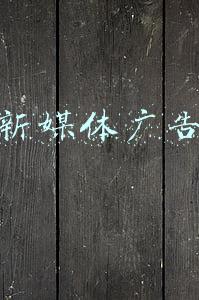 新媒体广告